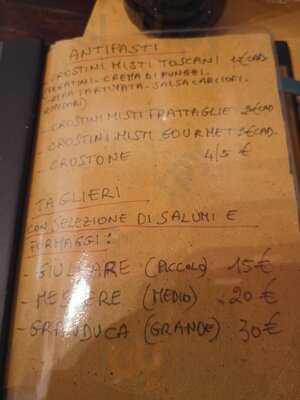 ANTIPASTI
- CROSTINI MISTI TOSCANI CAD.
CREMA DI FUNGHI.
CREMA TARTUFATA - SALSA CARCIOFI.
- CROSTINI MISTI FRATTAGLIE CAD
- CROSTINI MISTI GOURMET CAD.
- CROSTONE 4/5 €
TAGLIERI
CON SELEZIONE DI SALUMI E
FORMAGGI:
- GIULLARE (PICCOLO) 15€
- MESSERE (MEDIO) 20€
- GRANDUCA (GRANDE) 30€